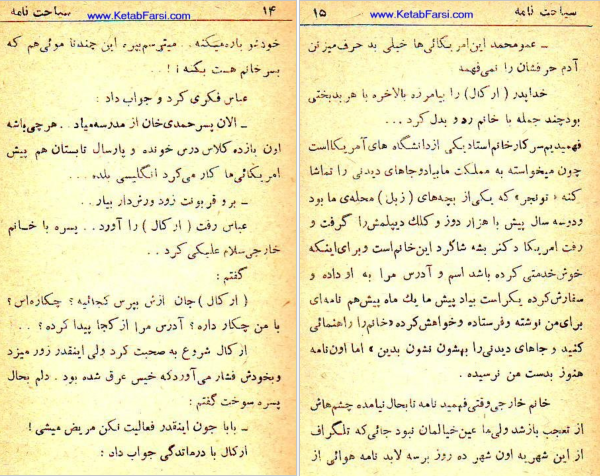 ۱۴ سیاحت نامه
www.KetabFarsi.com
خودتو پاره میکنه.. میترسم بپره این چندتا موئی هم که
بسر خانم هست بکنه! ..
عباس فکری کرد و جواب داد :
ـ الان پسر حمدی خان از مدرسه میاد .. هرچی باشه
اون یازده کلاس درس خونده و پارسال تابستان هم پیش
امریکائی ها کار می کرد انگلیسی بلده...
ـ برو قربونت زود ورش دار بیار..
عباس رفت ( ار کال ) را آورد.. پسره با خانم
خارجی سلام علیکی کرد ..
گفتم :
( ار کال ) جان ازش بپرس کجائیه ؟ چکاره اس ؟
با من چکار داره ؟ آدرس مرا از کجا پیدا کرده ؟ ..
ارکال شروع به صحبت کرد ولی اینقدر زور میزد
و بخودش فشار می آورد که خیس عرق شده بود . دلم بحال
پسره سوخت گفتم :
ـ بابا جون اینقدر فعالیت نکن مریض میشی !
ارکال با درماندگی جواب داد :
سیاحت نامه ۱۵
www.KetabFarsi.com
ـ عمو محمد این امریکائی ها خیلی بد حرف میزنن
آدم حرفشان را نمی فهمه
خدا پدر (ارکال) را بیامرزه بالاخره با هر بدبختی
بود چند جمله با خانم رد و بدل کرد...
فهمیدیم سرکار خانم استاد یکی از دانشگاه های آمریکااست
چون میخواسته به مملکت ما بیاد و جاهای دیدنی را تماشا
کنه « تونجر» که یکی از بچه های ( زبل ) محله ی ما بود
و دوسه سال پیش با هزار دوز و کلک دیپلمش را گرفت و
رفت امریکا دکتر بشه شاگرد این خانم است و برای اینکه
خوش خدمتی کرده باشد اسم و آدرس مرا به او داده و
سفارش کرده یکراست بیاد پیش ما یك ماه پیش هم نامه ای
برای من نوشته و فرستاده و خواهش کرده «خانم را راهنمائی
کنید و جاهای دیدنی را بهشون نشون بدین » اما اون نامه
هنوز بدست من نرسیده .
خانم خارجی وقتی فهمید نامه تا بحال نیامده چشم هاش
از تعجب باز شد ولی ما عین خیالمان نبود جائی که تلگراف
از این شهر به اون شهر ده روز برسه لابد نامه هوائی از